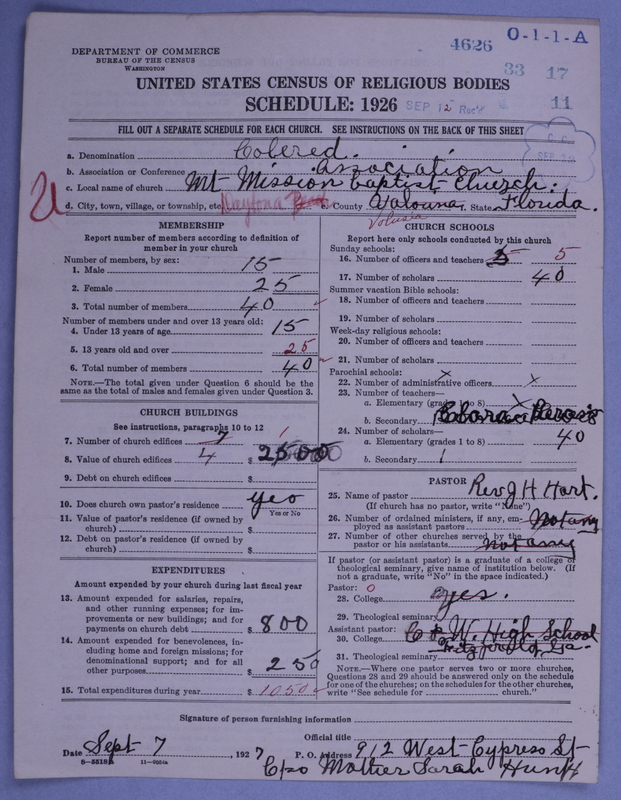 4626 O-1-1-A
33 17
11
DEPARTMENT OF COMMERCE
BUREAU OF THE CENSUS
WASHINGTON
UNITED STATES CENSUS OF RELIGIOUS BODIES
SCHEDULE: 1926
SEP 12 Rec'd
FILL OUT A SEPARATE SCHEDULE FOR EACH CHURCH. SEE INSTRUCTIONS ON THE BACK OF THIS SHEET
a. Denomination Colered.
b. Association or Conference Association
c. Local name of church Mt Mission Baptist Church.
d. City, town, village, or township, etc. Daytona e. County Valouna f. State Florida.
Volusia
MEMBERSHIP
Report number of members according to definition of
member in your church
Number of members, by sex:
1. Male 15
2. Female 25
3. Total number of members 40
Number of members under and over 13 years old:
4. Under 13 years of age 15
5. 13 years old and over 25
6. Total number of members 40
NOTE.—The total given under Question 6 should be the
same as the total of males and females given under Question 3.
CHURCH BUILDINGS
See instructions, paragraphs 10 to 12
7. Number of church edifices 1
8. Value of church edifices 4 $ 2500
9. Debt on church edifices $
10. Does church own pastor's residence yes
Yes or No
11. Value of pastor's residence (if owned by
church) $
12. Debt on pastor's residence (if owned by
church) $
EXPENDITURES
Amount expended by your church during last fiscal year
13. Amount expended for salaries, repairs,
and other running expenses; for im-
provements or new buildings; and for
payments on church debt $ 800
14. Amount expended for benevolences, in-
cluding home and foreign missions; for
denominational support; and for all
other purposes $ 250
15. Total expenditures during year $ 1050
CHURCH SCHOOLS
Report here only schools conducted by this church
Sunday schools:
16. Number of officers and teachers 5
17. Number of scholars 40
Summer vacation Bible schools:
18. Number of officers and teachers
19. Number of scholars
Week-day religious schools:
20. Number of officers and teachers
21. Number of scholars
Parochial schools: x
22. Number of administrative officers x
23. Number of teachers—
a. Elementary (grades 1 to 8) x
b. Secondary
24. Number of scholars—
a. Elementary (grades 1 to 8) 40
b. Secondary 1
PASTOR
25. Name of pastor Rev J H Hart.
(If church has no pastor, write "None")
26. Number of ordained ministers, if any, em-
ployed as assistant pastors not any
27. Number of other churches served by the
pastor or his assistants not any
If pastor (or assistant pastor) is a graduate of a college or
theological seminary, give name of institution below. (If
not a graduate, write "No" in the space indicated.)
Pastor: 0
28. College yes.
29. Theological seminary
Assistant pastor:
30. College C & W. High School
31. Theological seminary Ga.
NOTE.—Where one pastor serves two or more churches,
Questions 28 and 29 should be answered only on the schedule
for one of the churches; on the schedules for the other churches,
write "See schedule for church."
Signature of person furnishing information
Official title
Date Sept 7, 1927 P. O. Address 912 West Cypress St
8—5518A 11—9054a
C/o Mother Sarah Hunt